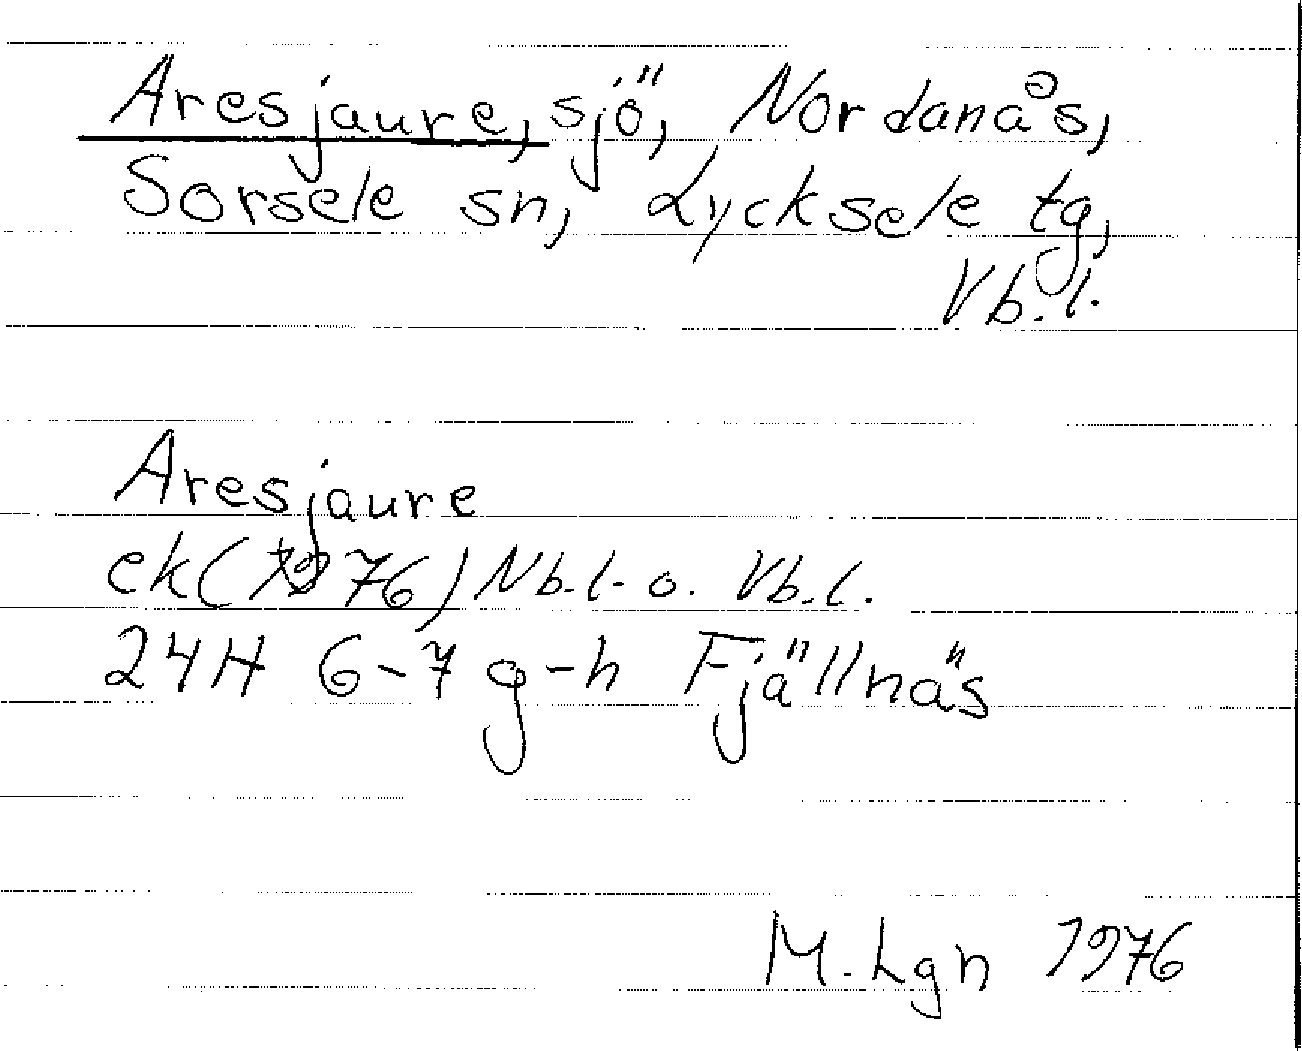 Aresjaure, sjö, Nordanås,
Sorsele sn, Lycksele tg,
Vb.l.
Aresjaure
ek (1976) Nb.l. o. Vb.l.
24H 6-7 g-h Fjällnäs
M. Lgn 1976